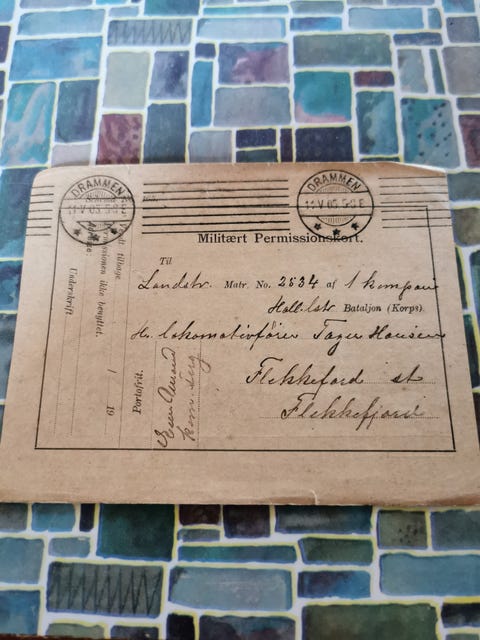 DRAMMEN
11 V 05 5-9 E
DRAMMEN
11 V 05 5-9 E
Militært Permissionskort.
Til
Landstr. Matr. No. 2534 af 1 kompani
Bataljon (Korps).
Hr. lokomotivfører Hansen
Flekkefjord st
Flekkefjord
Portofrit.
kom serg
tilbage
Permissionen ikke benyttet.
/ 19
Underskrift